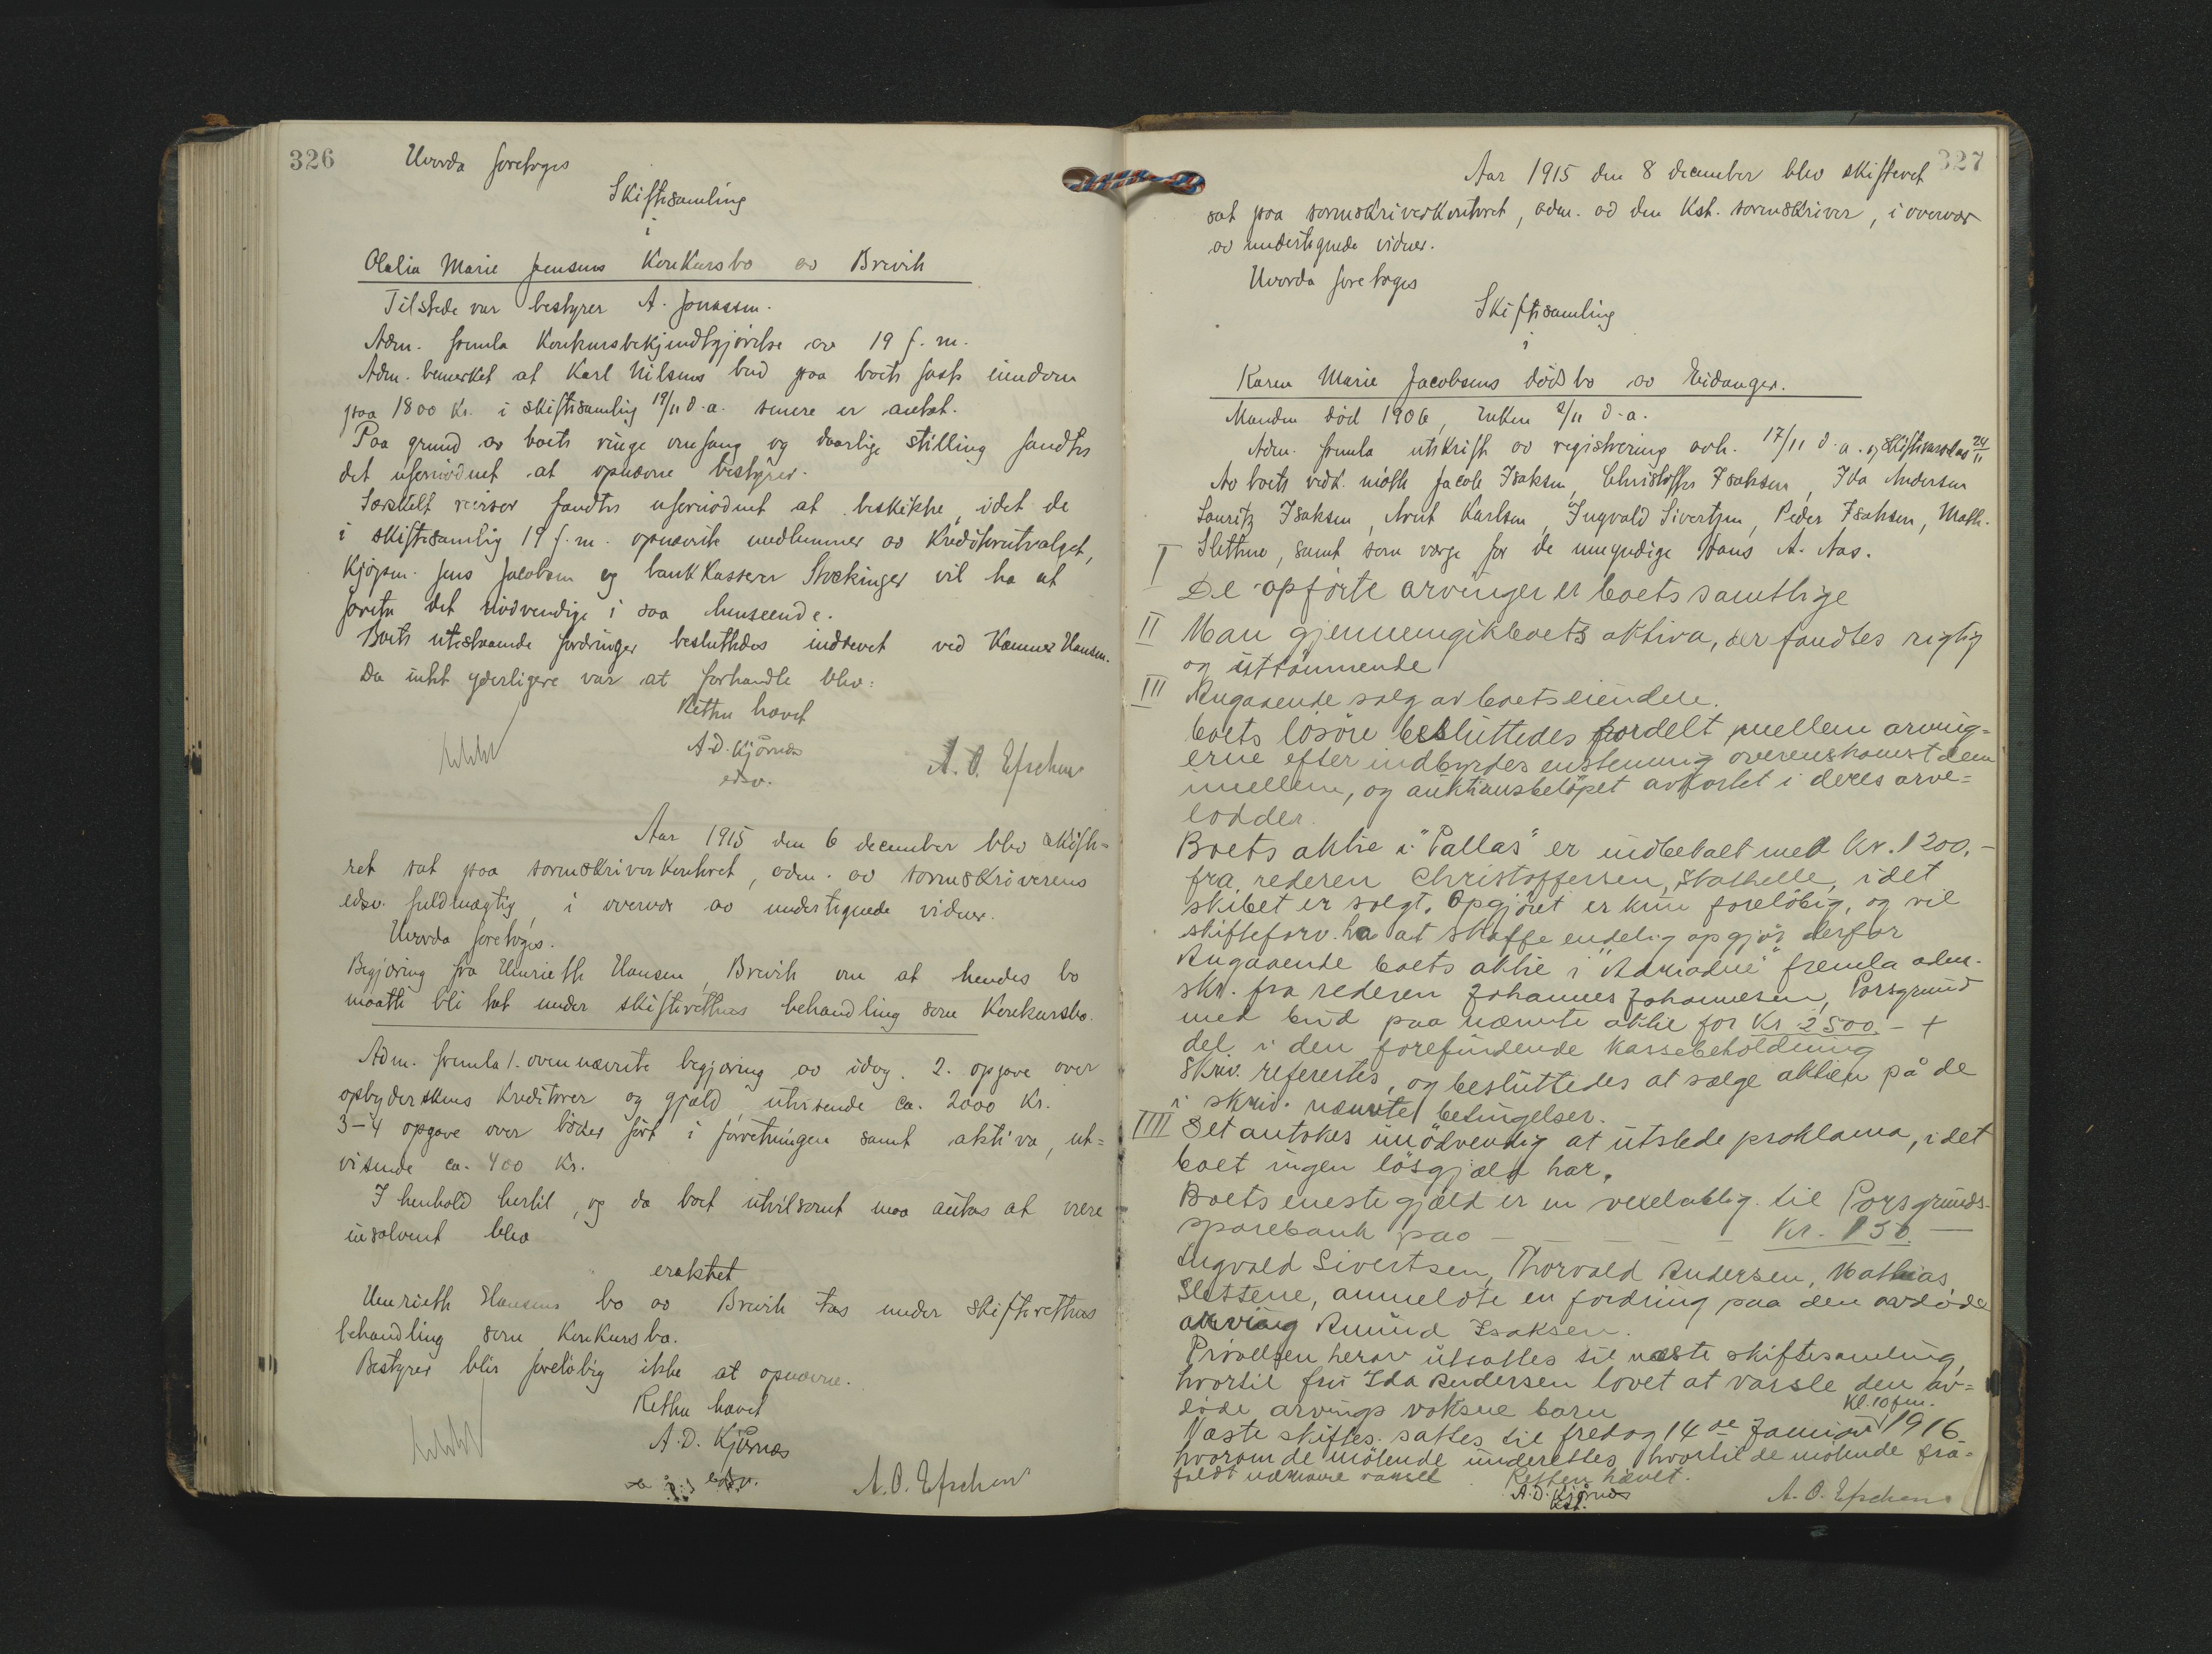 326
Hvorda foretoges
Skiftesamling
i
Olalia Marie Jensens Konkursbo av Brevik
Tilstede var bestyrer A. Jonassen.
Adm. fremla Konkursbekjendtgjørelse av 19 f. m.
Adm. bemerket at Karl Nilsens bud paa boets faste eiendom
paa 1800 Kr. i skiftesamling 19/11 d.a. senere er antat.
Paa grund av boets ringe omfang og daarlige stilling fandtes
det ufornødent at opnævne bestyrer.
Særskilt revisor fandtes ufornødent at beskikke, idet de
i skiftesamlig 19 f. m. opnævnte medlemmer av Kreditorutvalget,
Kjøpm. Jens Jacobsen og bankkasserer Stockinger vil ha at
foreta det nødvendige i saa henseende.
Boets utestaaende fordringer besluttedes inddrevet ved Kæmner Hansen.
Da intet yderligere var at forhandle blev:
Retten hævet
A.D. Kjørnæs
edsv.
A. O. Efschen
Aar 1915 den 6 december blev skifte-
ret sat paa sorenskriverkontoret, adm. av sorenskriverens
edsv. fuldmægtig, i overvær av undertegnede vidner.
Hvorda foretoges.
Begjæring fra Henriette Hansen, Brevik om at hendes bo
maatte bli tat under skifterettens behandling som Konkursbo.
Adm. fremla 1. ovennævnte begjæring av idag. 2. opgave over
opbyderskens Kreditorer og gjæld, utvisende ca. 2000 Kr.
3-4 opgave over bøker ført i forretningen samt aktiva, ut=
visende ca. 400 Kr.
I henhold hertil, og da boet utvilsomt maa antas at være
insolvent blev
eraktet
Henriette Hansens bo av Brevik tas under skifterettens
behandling som Konkursbo.
Bestyrer blir foreløbig ikke at opnævne.
Retten hævet
A.D. Kjørnæs
edsv.
A. O. Efschen
327
Aar 1915 den 8 december blev skifteret
sat paa sorenskriverkontoret, adm. av den Kst. sorenskriver, i overvær
av undertegnede vidner.
Hvorda foretoges
Skiftesamling
i
Karen Marie Jacobsens dødsbo av Eidanger.
Manden død 1906, Enken 2/11 d.a.
Adm. fremla utskrift av registrering avh. 17/11 d.a. og skiftevarsel av 24/11
Av boets vedk. møtte Jacob Isaksen, Christoffer Isaksen, Ida Andersen
Lauritz Isaksen, Arnt Karlsen, Ingvald Sivertsen, Peder Isaksen, Math.
Slettene, samt som verge for de umyndige Hans A. Aas.
I De opførte arvinger er boets samtlige
II Man gjennemgik boets aktiva, der fandtes rigtig
og uttømmende
III Angaaende salg av boets eiendele.
boets løsøre besluttedes fordelt mellem arving=
erne efter indbyrdes enstemmig overenskomst dem
imellem, og auktionsbeløpet avkortet i deres arve=
lodder.
Boets aktie i "Pallas" er indbetalt med kr. 1200.-
fra rederen Christoffersen, Stathelle, idet
skibet er solgt. Opgjøret er kun foreløbig, og vil
skifteforv. ha at skaffe endelig opgjør derfor
Angaaende boets aktie i "Ariadne" fremla adm.
skr. fra rederen Johannes Johannesen, Porsgrund
med bud paa nævnte aktie for Kr 2500.- +
del i den forefindende kassebeholdning
Skriv. referertes, og besluttedes at sælge aktien på de
i skriv. nævnte betingelser.
IIII Det antokes unødvendig at utstede proklama, idet
boet ingen løsgjæld har.
Boets eneste gjæld er en vexelobllig. til Porsgrunds-
sparebank paa - - - - - Kr. 150. -
Ingvald Sivertsen, Thorvald Andersen, Mathias
Slettene, anmeldte en fordring paa den avdøde
arving Amund Isaksen.
Prøvelsen herav utsattes til næste skiftesamling,
hvortil fru Ida Andersen lovet at varsle den av=
døde arvings voksne barn
Kl. 10 fm.
Næste skiftes. sattes til fredag 14de Januar 1916
hvorom de møtende underettes, hvortil de møtende fra=
faldt nærmere varsel
Retten hævet.
A.D. Kjørnæs
Kst.
A. O. Efschen